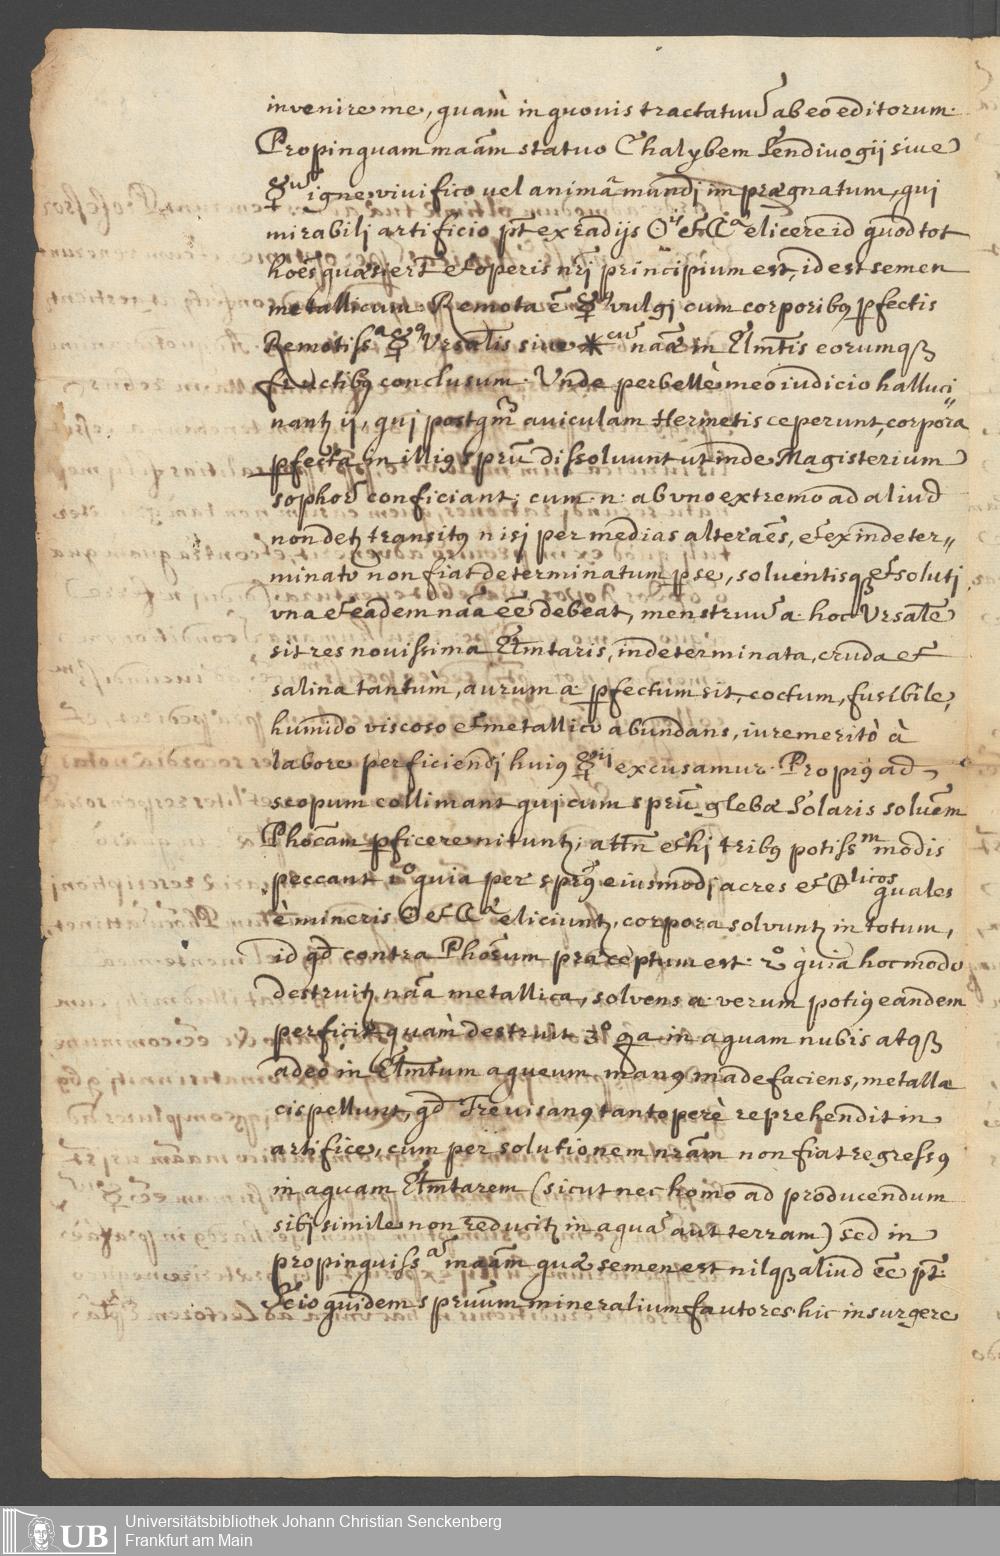 invenire me, quam̀ in quovis tractatuũ ab eo editorum.
Propinquam maãm statuo Chalybem Sendivogij sive
☿ũ igne vivifico vel animã mundj impraegnatum, quj
mirabilj artificio pt̃ ex radijs ☉ij et ☾ae elicere id quod tot
hoẽs quaerert̃ et operis nr̃j principium est, id est semen
metallicum. Remota ẽ ☿ij vulgj cum corporibꝰ ꝑfectis
Remotissa ☿a Vrsalis̃ sive ✶cũ naã in Elmt̃is eorumqꝫ
fructibꝰ conclusum. Vnde perbellè meo iudicio halluci„
nantꝫ ij, quj postqm̃ aviculam Hermetis ceperunt, corpora
ꝑfecta in illiꝰ spr̃u dissolvunt ut inde Magisterium
sophorũ conficiant; cum .n. ab vno extremo ad aliud
non detꝫ transitꝰ nisj per medias alteraẽs, et ex indeter„
minato non fiat determinatum ꝑse, solventisqꝫ et solutj
vna et eadem naã eẽ debeat, menstruũ a. hoc Vrsalẽ
sit res novissima Elmt̃aris, indeterminata, cruda et
salina tantùm, aurum a. ꝑfectum sit, coctum, fusibile,
humido viscoso et metallico abundans, iure meritò à
labore perficiendj huiꝰ ☿ij excusamur. Propiꝰ ad
scopum collimant quj cum spr̃u glebae Solaris solvẽm
Phõcam ꝑficere nituntꝫ; attñ et hj tribꝰ potissm modis
peccant 1o quia per sprꝰ̃ eiusmodj acres et ☿licos quales
è mineris ☉ et ☾ae eliciuntꝫ, corpora solvuntꝫ in totum,
id qd̃ contra Phõrum praeceptum est. 2o quia hoc modo
destruitꝫ naã metallica, solvens a. verum potiꝰ eandem
perficit quam̀ destruit 3o qa in aquam nubis atqꝫ
adeò in Elmt̃um aqueum manꝰ madefaciens, metalla
cispellunt, qd̃ Trevisanꝰ tantoperè reprehendit in
artifice, cum per solutionem nrãm non fiat regressꝰ
in aquam Elmt̃arem (sicut nec homo ad producendum
sibj simile non reducitꝫ in aquã aut terram) sed in
propinquissã maãm quae semen est nilqꝫ aliud eẽ pt̃.
Scio quidem spr̃uum mineralium fautores hic insurgere
Universitätsbibliothek Johann Christian Senckenberg
Frankfurt am Main
UB